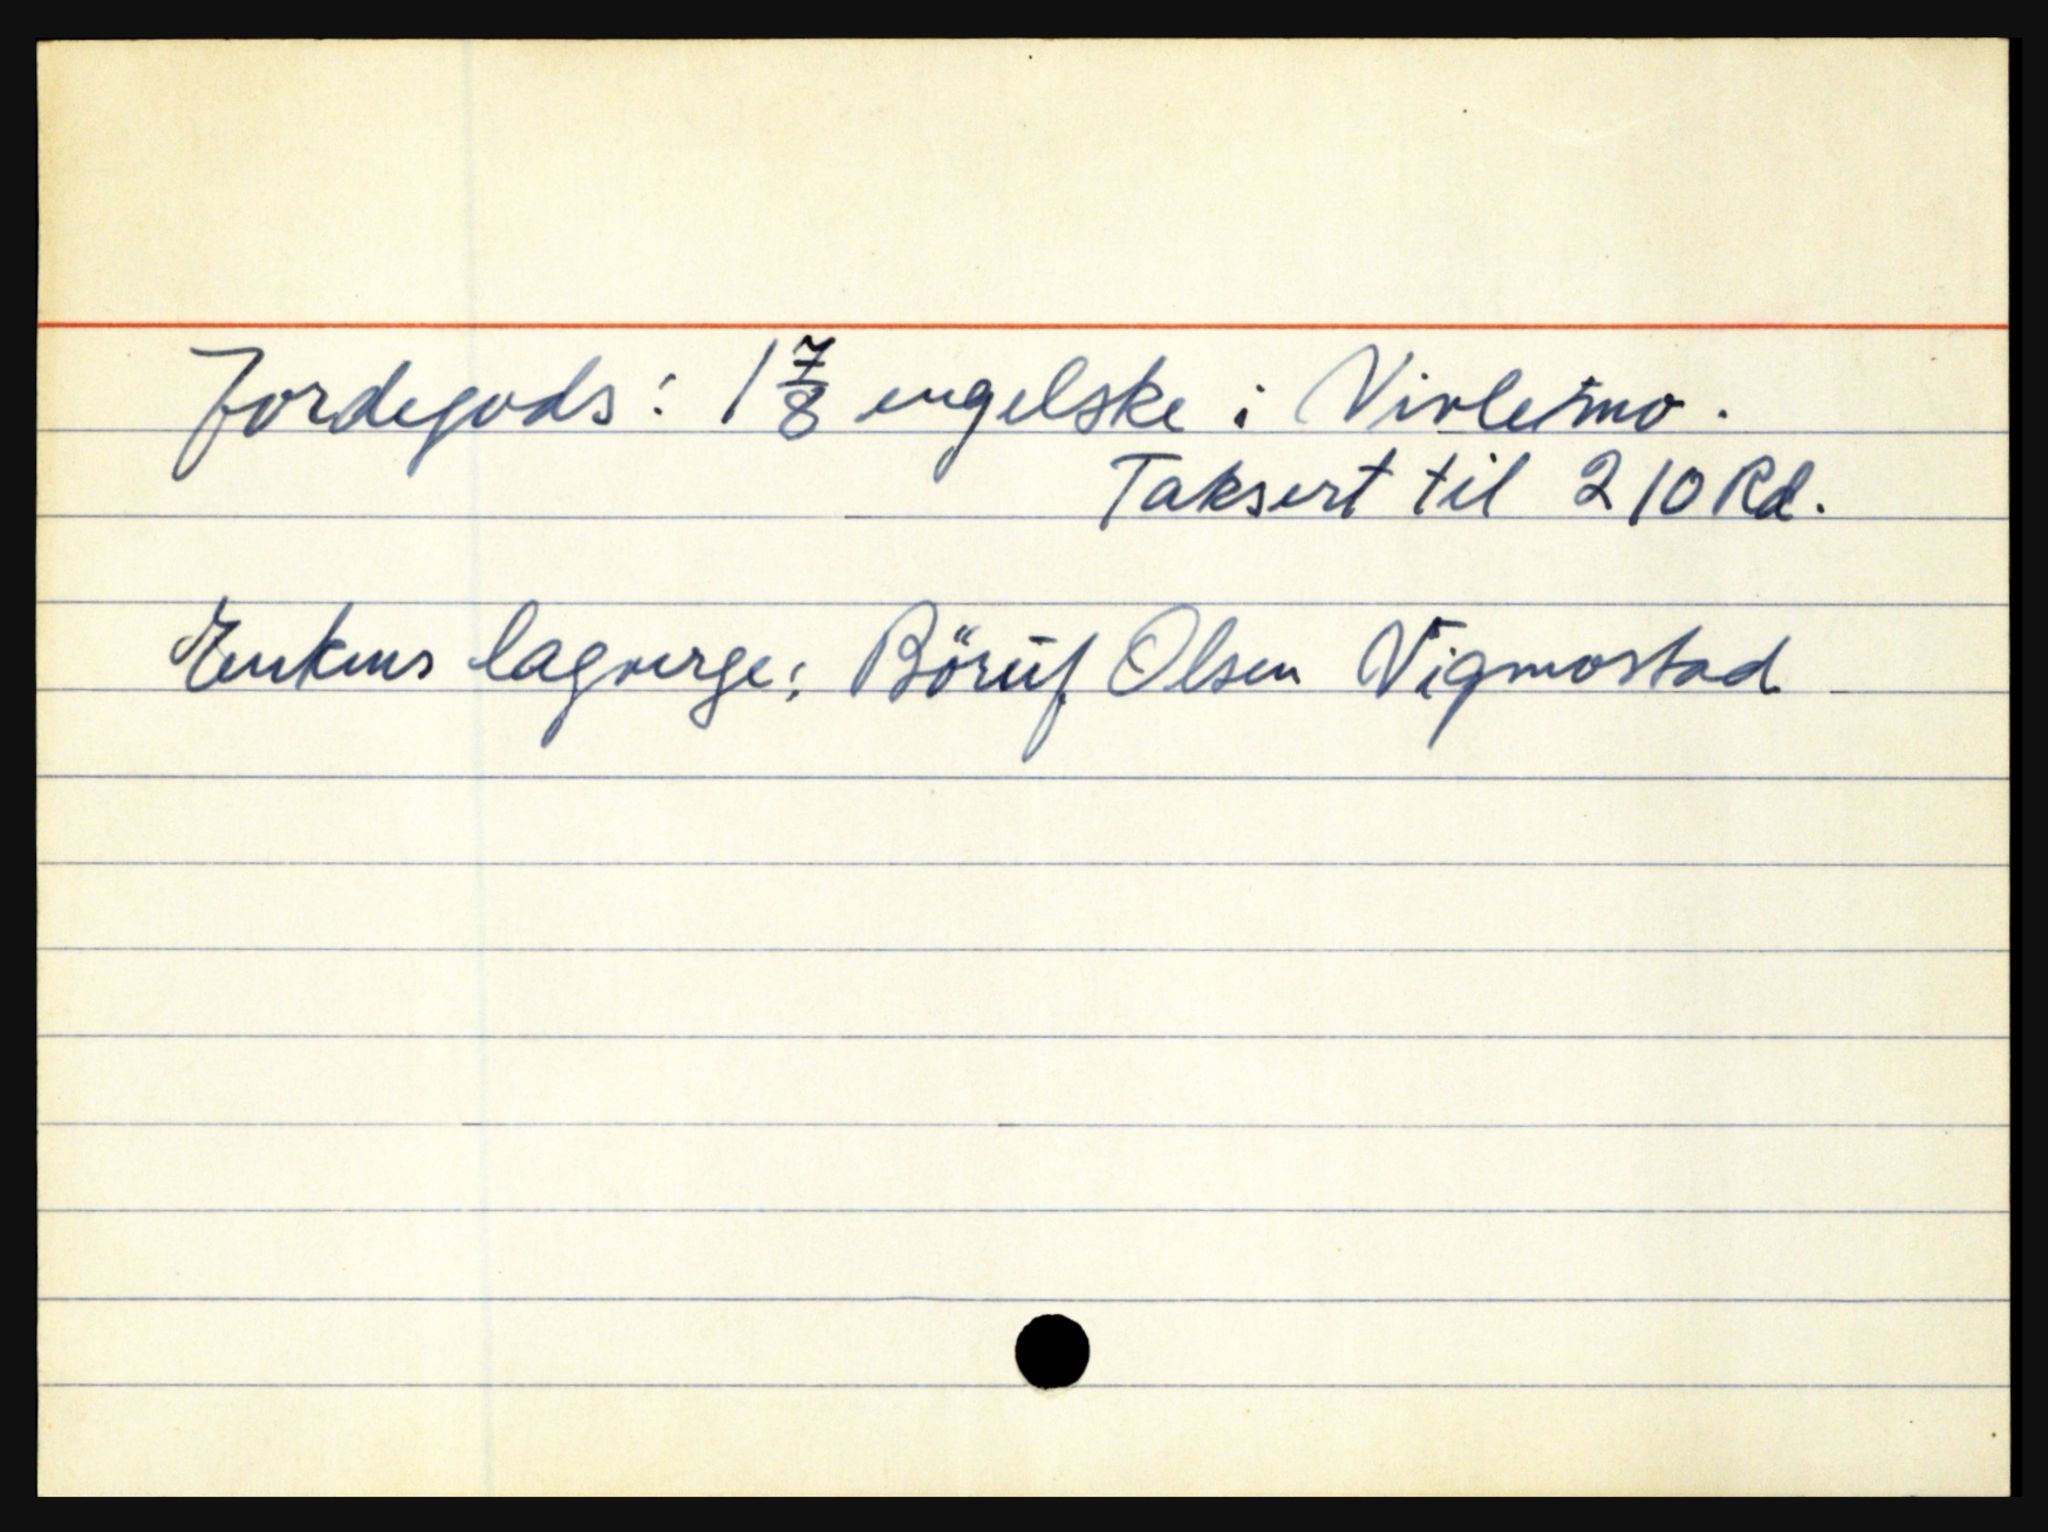 Jordegods: 1 7/8 engelske i Virleimo.
Taksert til 210 Rd.
Enkens lagverge: Böruf Olsen Vigmostad